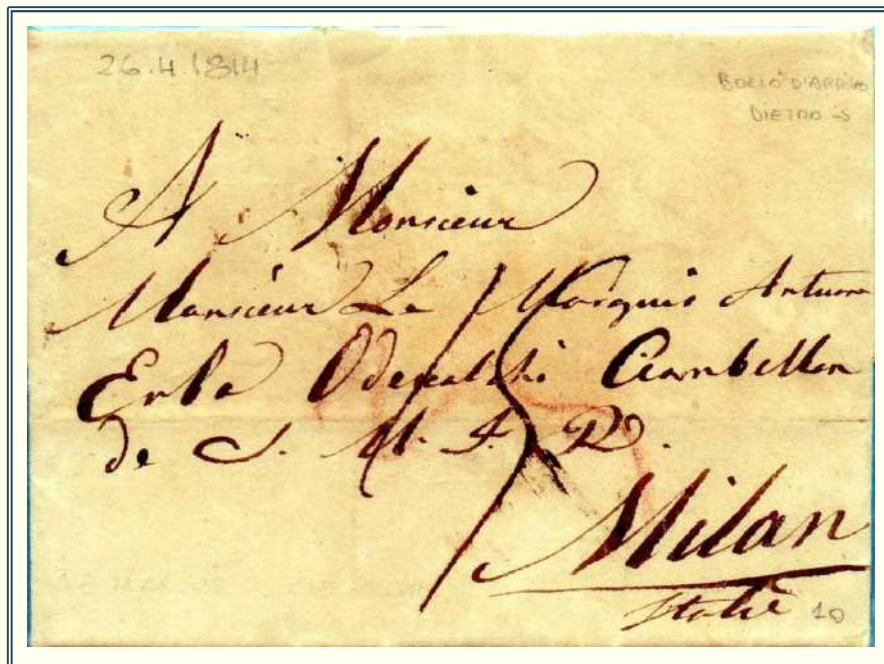 26.4.1814
BOLLO D'ARRIVO
DIETRO
A Monsieur
Monsieur Le Marquis Arturo
Erba Odescalchi Ciambellan
de S. M. I. R.
Milan
Italie
10